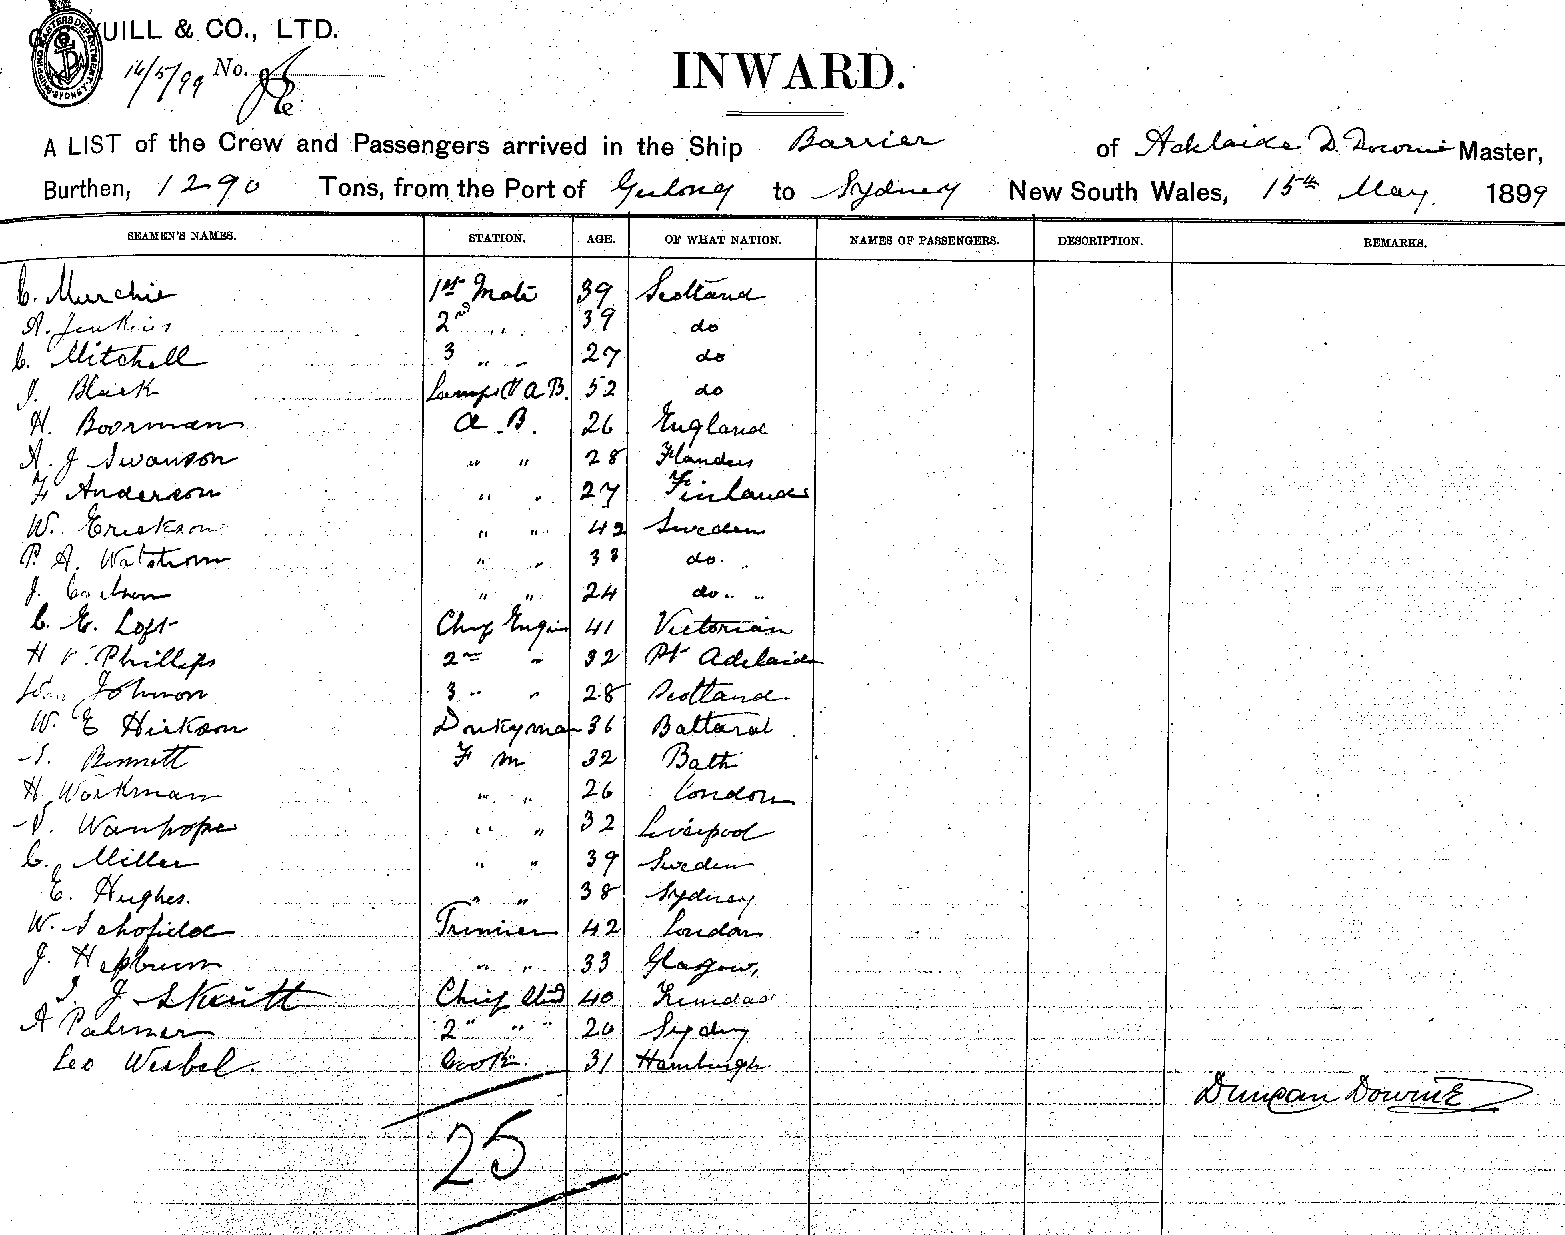 QUILL & CO., LTD.
16/5/99 No.
INWARD.
A LIST of the Crew and Passengers arrived in the Ship Barrier of Adelaide D. Downie Master,
Burthen, 1290 Tons, from the Port of Geelong to Sydney New South Wales, 15th May 1899
SEAMEN'S NAMES. STATION. AGE. OF WHAT NATION. NAMES OF PASSENGERS. DESCRIPTION. REMARKS.
C. Murchie 1st Mate 39 Scotland
A. Jenkins 2nd " 39 do
C. Mitchell 3 " " 27 do
J. Black Lamps & A B. 52 do
H. Boorman A. B. 26 England
A. J Swanson " " 28 Flanders
F Anderson " " 27 Finland
W. Erickson " " 42 Sweden
P. A. Watstrom " " 33 do.
J. Carlson " " 24 do. " "
C. E. Loft Chief Engin 41 Victorian
H V. Phillips 2nd " 32 Pt Adelaide
Johnson 3 " " 28 Scotland
W. E Hickson Donkyman 36 Ballarat
Bennett F m 32 Bath
H. Workman " " 26 London
Wauhope " " 32 Liverpool
C. Miller " " 39 Sweden
E. Hughes. " " 38 Sydney
W. Schofield Trimmer 42 London
J. Hepburn " " 33 Glasgow,
J Skeutt Chief Std 40 Trinidad
A Palmer 2" " " 20 Sydny
Leo Weibel. Cook. 31 Hamburgh
Duncan Downie
25